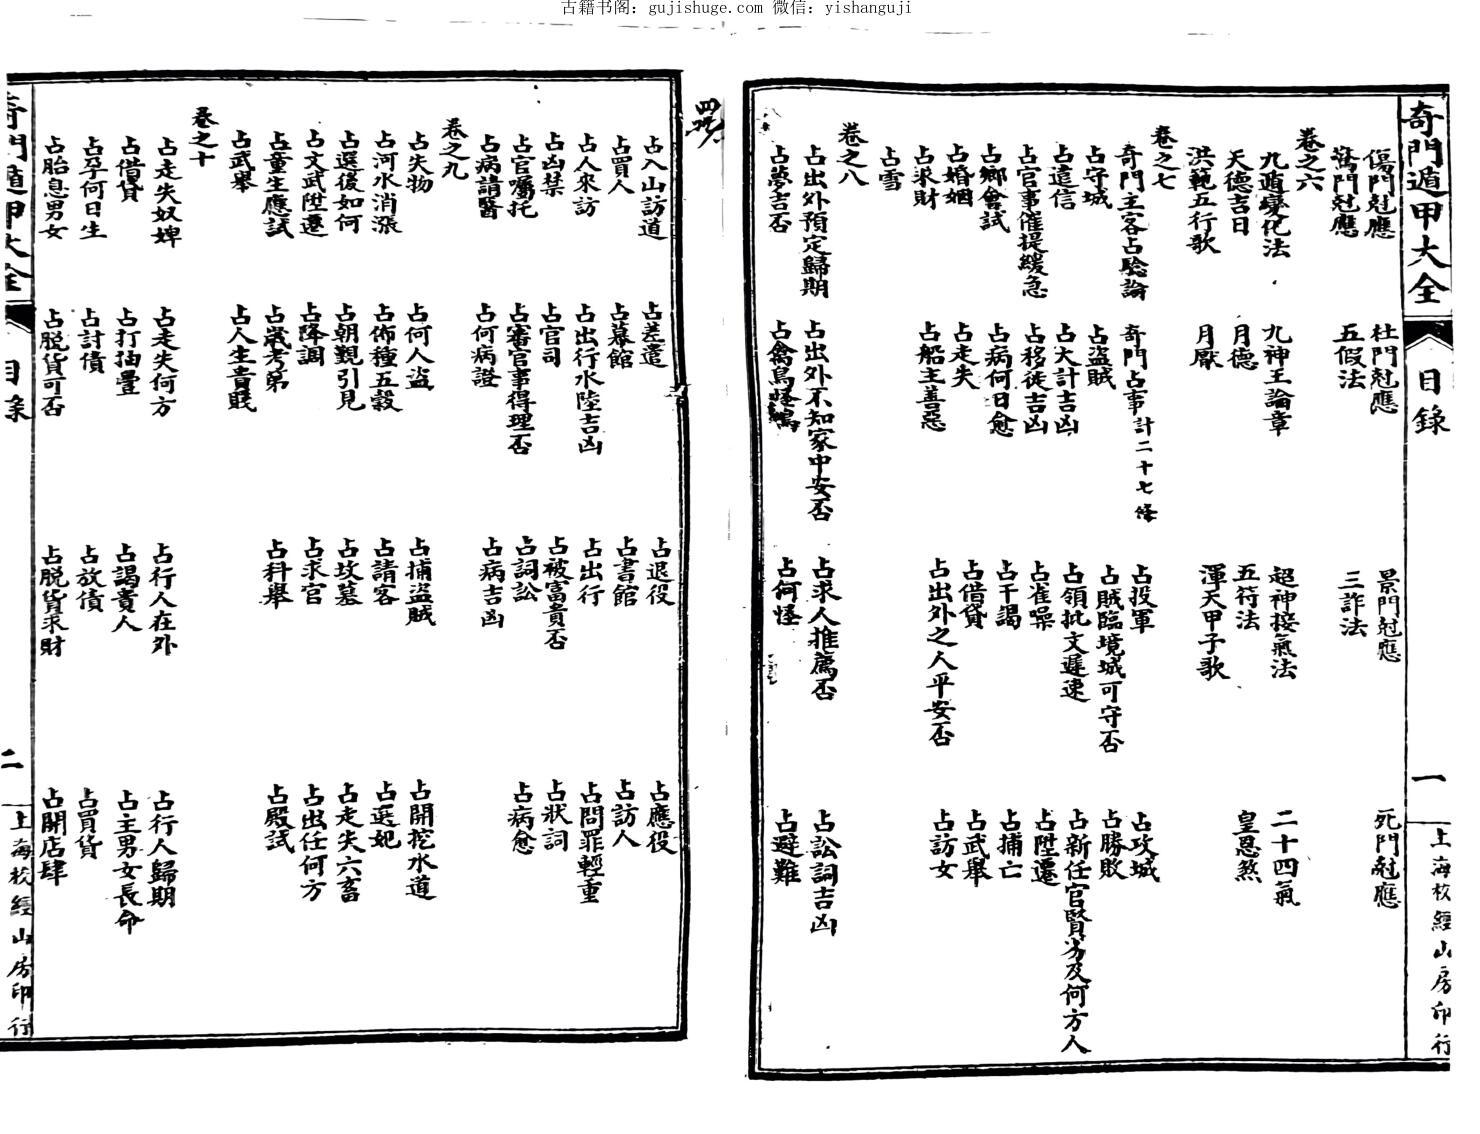 古籍书阁：gujishuge.com 微信：yishanguji
奇門遁甲大全 目錄 一 上海校經山房印行
傷門尅應 杜門尅應 景門尅應 死門尅應
驚門尅應 五假法 三詐法
卷之六
九遁變化法 九神王論章 超神接氣法 二十四氣
天德吉日 月德 五符法 皇恩煞
洪範五行歌 月厭 渾天甲子歌
卷之七
奇門主客占驗論 奇門占事計二十七條 占投軍 占攻城
占守城 占盜賊 占賊臨境城可守否 占勝敗
占遠信 占大計吉凶 占領批文遲速 占新任官賢劣及何方人
占官事催提緩急 占移徙吉凶 占雀噪 占陞遷
占鄉會試 占病何日愈 占干謁 占捕亡
占婚姻 占走失 占借貸 占武舉
占求財 占船主善惡 占出外之人平安否 占訪女
占雪
卷之八
占出外預定歸期 占出外不知家中安否 占求人推薦否 占訟詞吉凶
占夢吉否 占禽鳥怪鳴 占何怪 占避難
占入山訪道 占差遣 占退役 占應役
占買人 占幕館 占書館 占訪人
占人來訪 占出行水陸吉凶 占出行 占問罪輕重
占凶禁 占官司 占被富貴否 占狀詞
占官囑托 占審官事得理否 占詞訟 占病愈
占病請醫 占何病證 占病吉凶
卷之九
占失物 占何人盜 占捕盜賊 占開挖水道
占河水消漲 占佈種五穀 占請客 占選妃
占選後如何 占朝覲引見 占坟墓 占走失六畜
占文武陞遷 占降調 占求官 占出任何方
占童生應試 占歲考第 占科舉 占殿試
占武舉 占人生貴賤
卷之十
占走失奴婢 占走失何方 占行人在外 占行人歸期
占借貸 占打抽豐 占謁貴人 占主男女長命
占孕何日生 占討債 占放債 占買貨
占胎息男女 占脫貨可否 占脫貨求財 占開店肆
奇門遁甲大全 目錄 二 上海校經山房印行